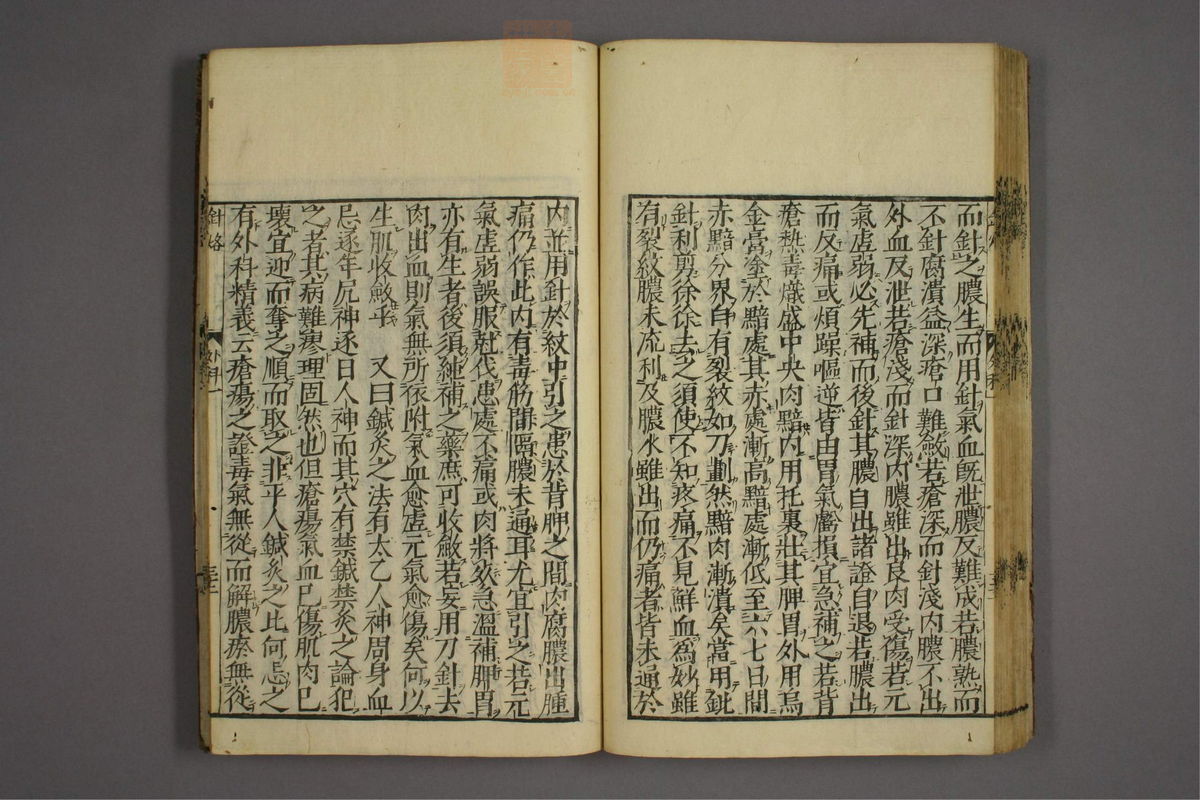 而針之膿生而用針氣血既泄膿反難成若膿熟而
不針腐潰益深瘡口難斂若瘡深而針淺内膿不出
外血反泄若瘡淺而針深内膿雖出良肉受傷若元
氣虛弱必先補而後針其膿自出諸證自退若膿出
而反痛或煩躁嘔逆皆由胃氣虧損宜急補之若背
瘡熱毒熾盛中央肉黯内用托裏壯其脾胃外用烏
金膏塗於黯處其赤處漸高黯處漸低至六七日間
赤黯分界自有裂紋如刀劃然黯肉漸潰矣當用鈚
針利剪徐徐去之須使不知疼痛不見鮮血爲妙雖
有裂紋膿未流利及膿水雖出而仍痛者皆未通於
内並用針於紋中引之患於背胛之間肉腐膿出腫
痛仍作此内有毒筋間隔膿未通耳尤宜引之若元
氣虛弱誤服尅伐患處不痛或肉將死急溫補脾胃
亦有生者後須純補之藥庶可收斂若妄用刀針去
肉出血則氣無所依附氣血愈虛元氣愈傷矣何以
生肌收斂乎 又曰鍼灸之法有太乙人神周身血
忌逐年尻神逐日人神而其穴有禁鍼禁灸之論犯
之者其病難瘳理固然也但瘡瘍氣血已傷肌肉已
壞宜迎而奪之順而取之非平人鍼灸之比何忌之
有外科精義云瘡瘍之證毒氣無從而解膿瘀無從
針烙
外科一
三十二